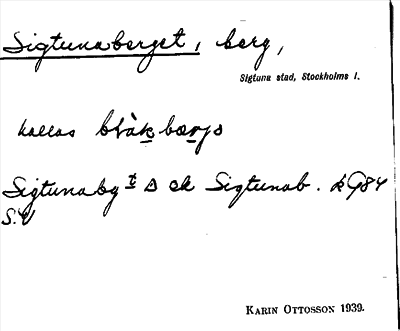 Sigtunaberget, berg,
Sigtuna stad, Stockholms l.
kallas blåkbærjə
Sigtunaby
Sigtunab.
S.V
KARIN OTTOSSON 1939.